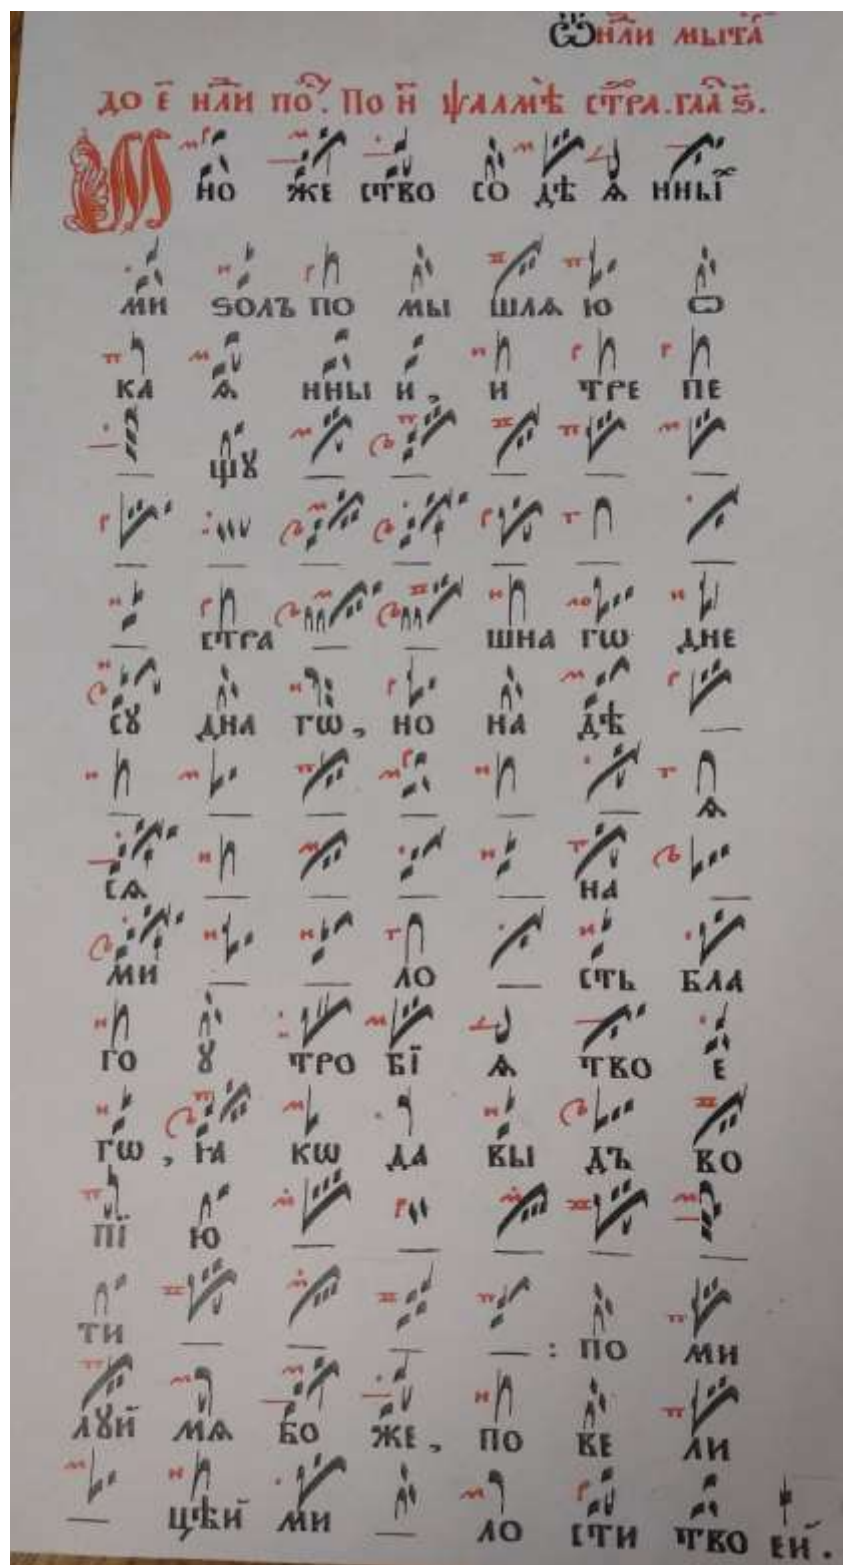 Ѿ нл҃и мыта̑
до є҃ нл҃и по̑. По н҃ ѱалмѣ ст҃ра. гла̑ ѕ҃.
М но же ство со дѣ ѧ нны̑
ми ѕолъ по мы шлѧ ю ѻ
ка ѧ нны и, и тре пе
— щꙋ — — — — —
— — — — — — —
— стра — — шна гѡ дне
сꙋ дна гѡ, но на дѣ —
— — — — — — ѧ
сѧ — — — — на —
ми — — ло — сть бла
го ꙋ тро бї ѧ тво е
гѡ, ꙗ кѡ да вы дъ во
пї ю — — — — —
ти — — — — : по ми
лꙋй мѧ бо же, по ве ли
— цѣй ми — ло сти тво ей.